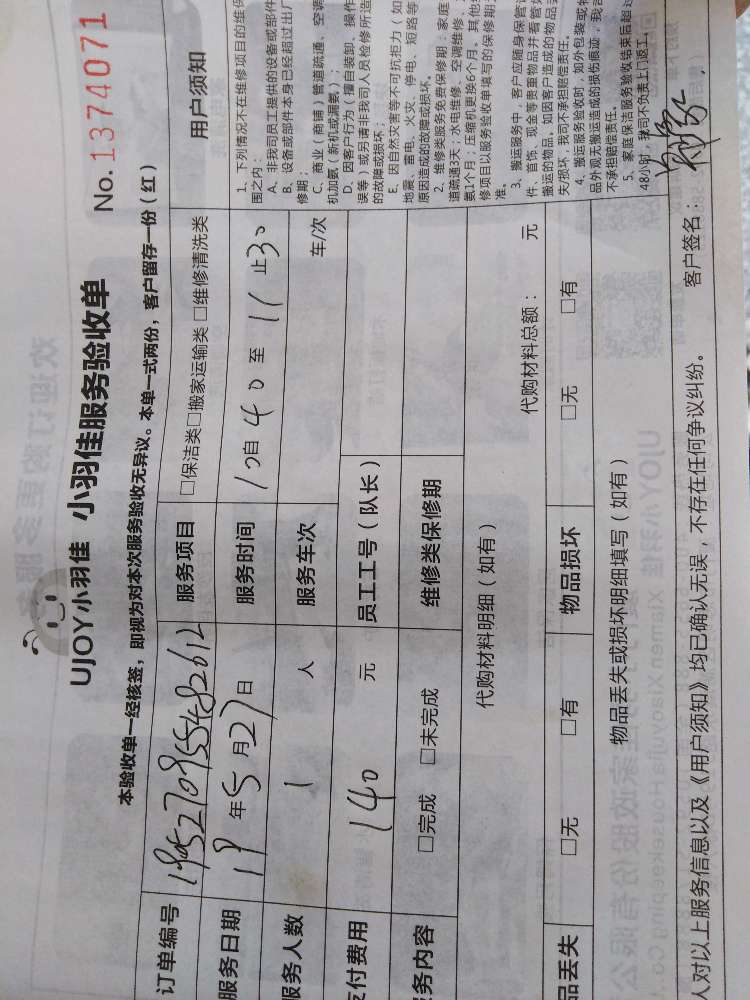 UJOY小羽佳 小羽佳服务验收单
No. 1374071
本验收单一经核签，即视为对本次服务验收无异议。本单一式两份，客户留存一份（红）
订单编号 1905270955482612 服务项目 □保洁类□搬家运输类 □维修清洗类
服务日期 19年5月27日 服务时间 10自40至11止30
服务人数 1 人 服务车次 车/次
支付费用 140 元 员工工号（队长）
务内容 □完成 □未完成 维修类保修期
代购材料明细（如有） 代购材料总额： 元
品丢失 □无 □有 物品损坏 □无 □有
物品丢失或损坏明细填写（如有）
人对以上服务信息以及《用户须知》均已确认无误，不存在任何争议纠纷。 客户签名：
用户须知
1、下列情况不在维修项目的维保
围之内：
A、非我司员工提供的设备或部件
B、设备或部件本身已经超过出厂
修期；
C、商业（商铺）管道疏通、空调
机加氨（新机或漏氨）；
D、因客户行为（擅自装卸、操作
误等）或另请非我司人员检修所造
的故障或损坏；
E、因自然灾害等不可抗拒力（如
地震、雷电、火灾、停电、短路等
原因造成的故障或损坏。
2、维修类服务免费保修期：家庭
道疏通3天；水电维修、空调维修、
氨1个月；压缩机更换6个月。其他
修项目以服务验收单填写的保修期
准。
3、搬运服务中，客户应随身保管
件、首饰、现金等贵重物品并看管
搬运的物品。如因客户造成的物品
失/损坏，我司不承担赔偿责任。
4、搬运服务验收时，如外包装或
品外观无搬运造成的损伤痕迹，我
不承担赔偿责任。
5、家庭保洁服务验收结束后超过
48小时，我司不负责上门返工。